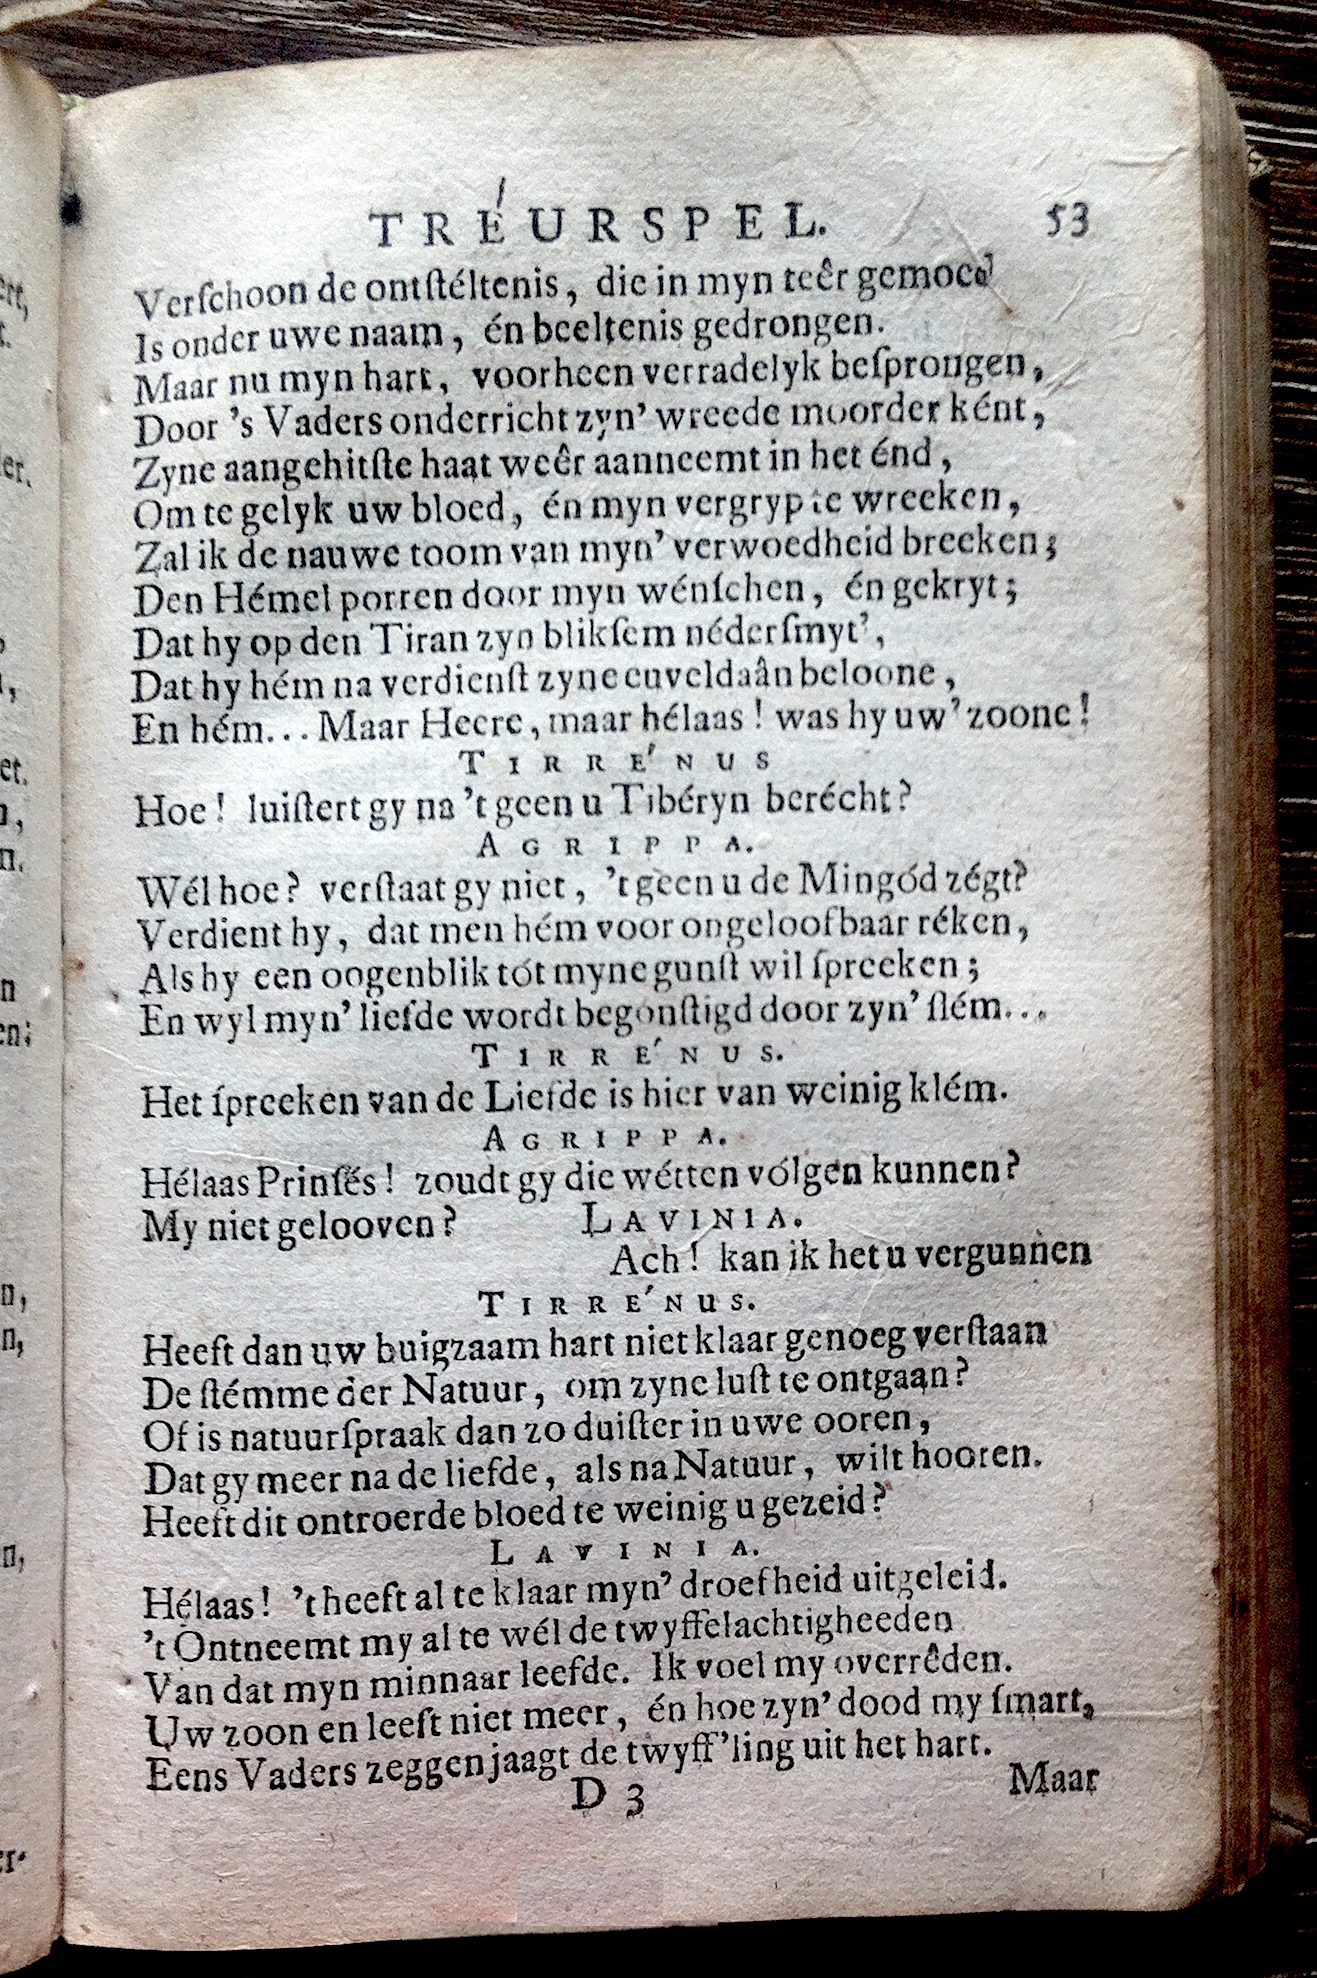 TRÉURSPEL. 53
Verſchoon de ontſtéltenis, die in myn teêr gemoed
Is onder uwe naam, én beeltenis gedrongen.
Maar nu myn hart, voorheen verradelyk beſprongen,
Door 's Vaders onderricht zyn' wreede moorder ként,
Zyne aangehitſte haat weêr aanneemt in het énd,
Om te gelyk uw bloed, én myn vergryp te wreeken,
Zal ik de nauwe toom van myn' verwoedheid breeken;
Den Hémel porren door myn wénſchen, én gekryt;
Dat hy op den Tiran zyn blikſem néderſmyt',
Dat hy hém na verdienſt zyne euveldaân beloone,
En hém... Maar Heere, maar hélaas! was hy uw' zoone!
TIRRE´NUS
Hoe! luiſtert gy na 't geen u Tibéryn berécht?
AGRIPPA.
Wél hoe? verſtaat gy niet, 't geen u de Mingód zégt?
Verdient hy, dat men hém voor ongeloofbaar réken,
Als hy een oogenblik tót myne gunſt wil ſpreeken;
En wyl myn' liefde wordt begonſtigd door zyn' ſlém...
TIRRE´NUS.
Het ſpreeken van de Liefde is hier van weinig klém.
AGRIPPA.
Hélaas Prinſés! zoudt gy die wétten vólgen kunnen?
My niet gelooven? LAVINIA.
Ach! kan ik het u vergunnen
TIRRE´NUS.
Heeft dan uw buigzaam hart niet klaar genoeg verſtaan
De ſtémme der Natuur, om zyne luſt te ontgaan?
Of is natuurſpraak dan zo duiſter in uwe ooren,
Dat gy meer na de liefde, als na Natuur, wilt hooren.
Heeft dit ontroerde bloed te weinig u gezeid?
LAVINIA.
Hélaas! 't heeft al te klaar myn' droefheid uitgeleid.
't Ontneemt my al te wél de twyffelachtigheeden
Van dat myn minnaar leefde. Ik voel my overrêden.
Uw zoon en leeft niet meer, én hoe zyn' dood my ſmart,
Eens Vaders zeggen jaagt de twyff'ling uit het hart.
D 3 Maar